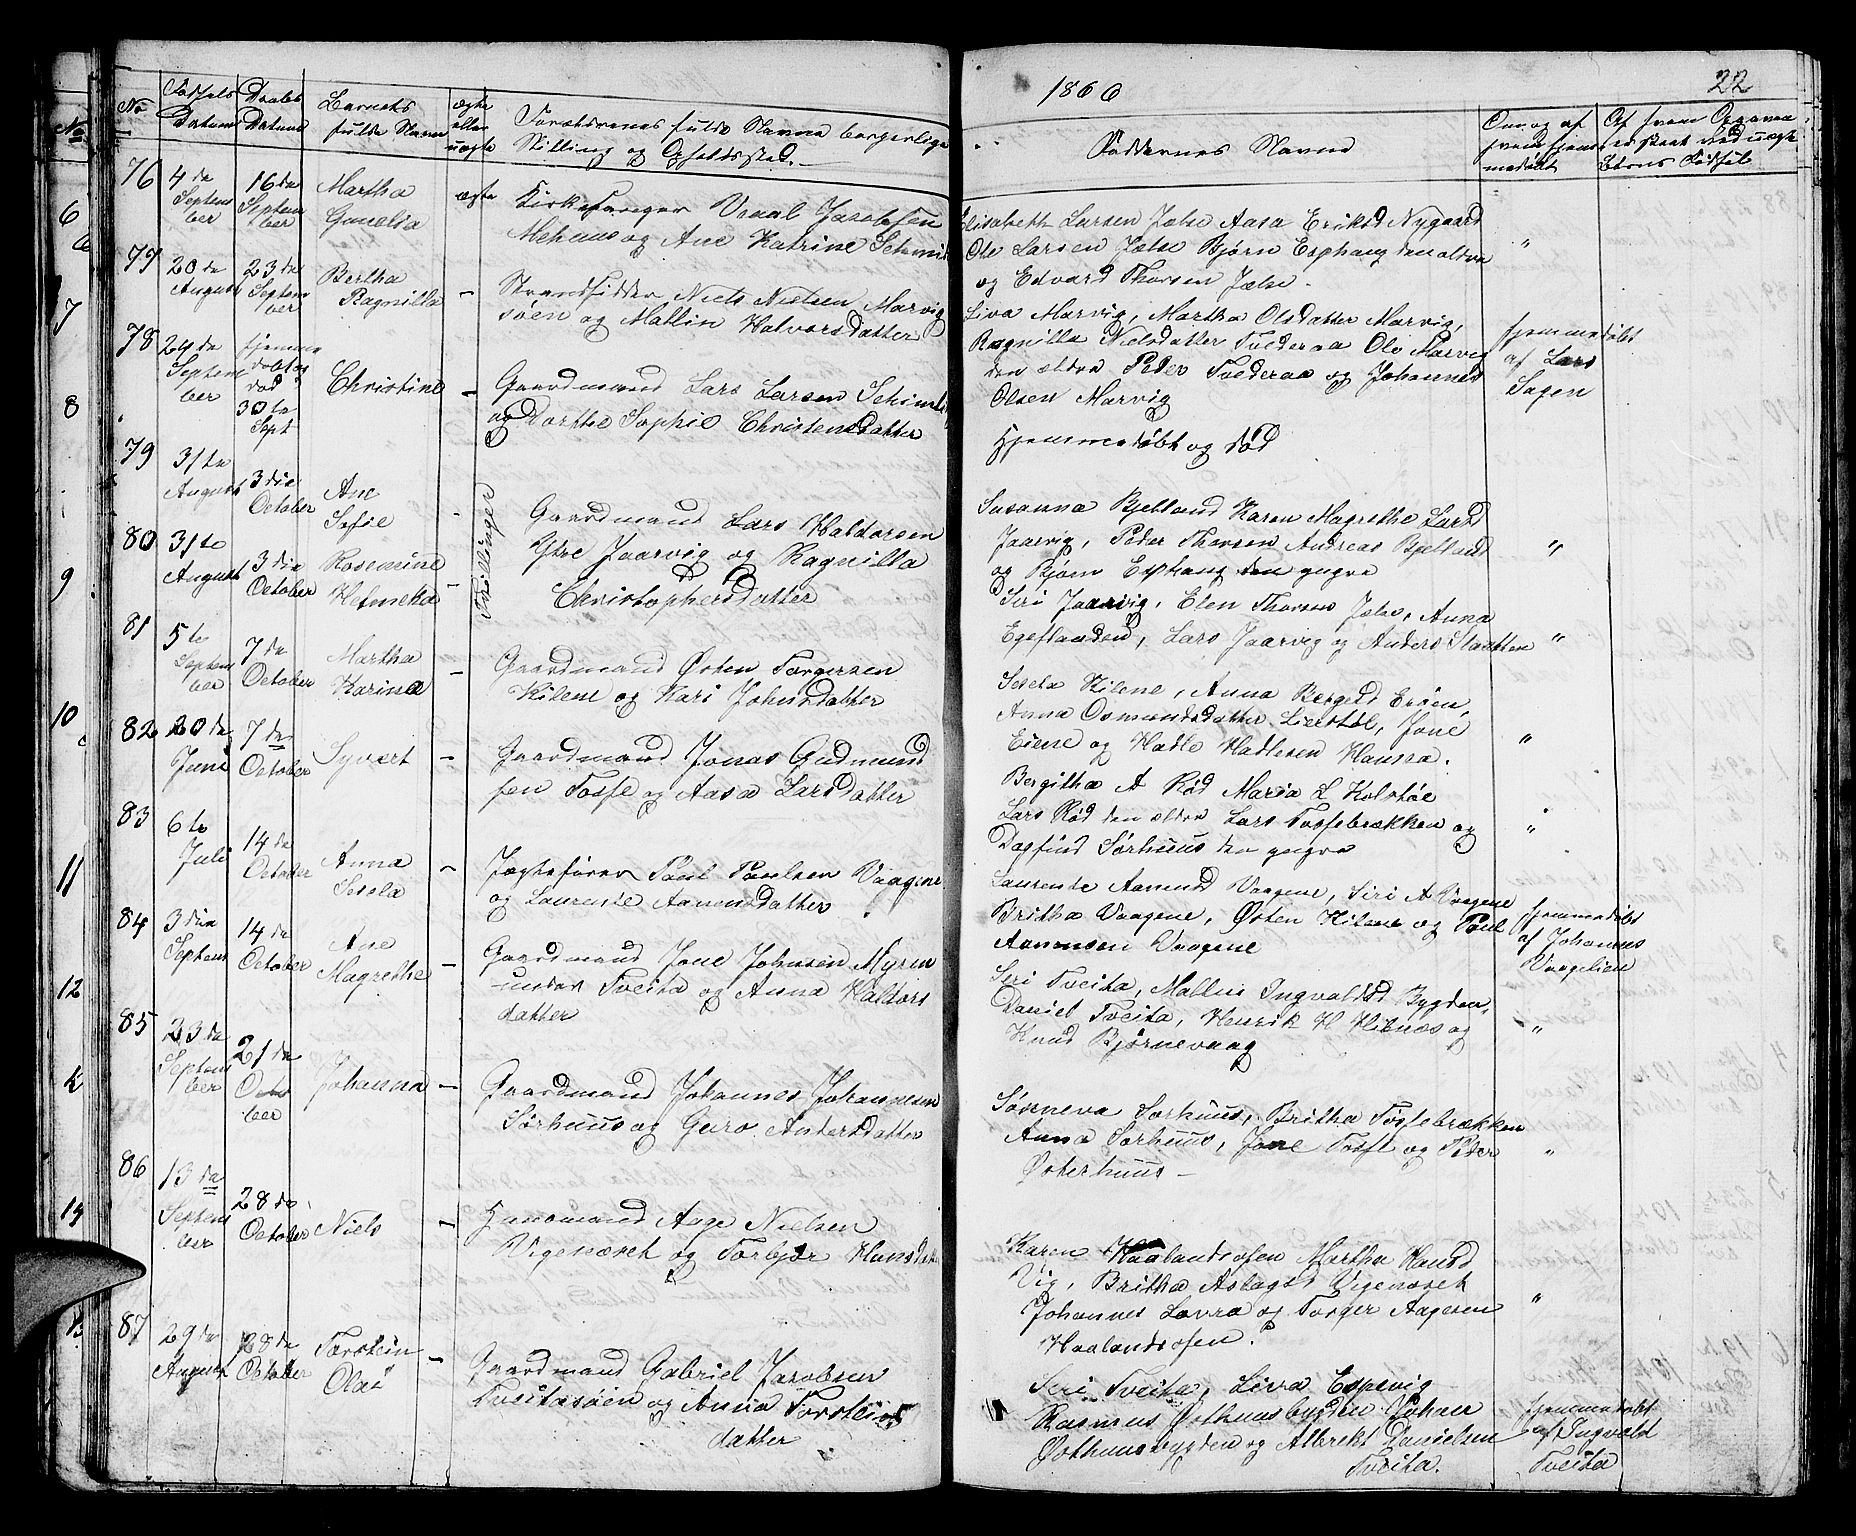 1866
22
No
Fødsels Datum
Daabs Datum
Barnets fulde Navn
ægte eller uægte
Forældrenes fulde Navne borgerlige
Stilling og Opholdssted.
Faddernes Navne
Om og af hvem hjemmedøbt
76
4de September
16de September
Martha
ægte
Kirkesanger
Mehuus og Ane Katrine
Elisabeth Larsen Jelse Aasa Eriksd Nygaard
Ole Larsen Jelse Bjørn Esphaug den ældre
og Edvard Thorsen Jelse.
"
77
20de August
23de September
Bertha
Ragnilla
-
Strandsidder Niels Nielsen Marvig
søen og Mallin Halvorsdatter
Liva Marvig, Martha Olsdatter Marvig,
Ragnilla Nielsdatter Tvederaa Ole Marvig
den ældre Peder Tvederaa og Johannes
Olsen Marvig
hjemmedøbt
af Lars
Sagen
78
24de September
hjemme
døbt og
død
30te Sept
Christine
-
Gaardmand Lars Larsen
og Dorthe Sophie Christensdatter
Hjemmedøbt og død
79
31te August
3die October
Ane
Sofie
-
Tvillinger
Gaardmand Lars Haldorsen
Ytre Jaarvig og Ragnilla
Christophersdatter
Susanna Bjelland Karen Magrethe Larsd
Jaarvig, Peder Thorsen Andreas Bjelland
og Bjørn Esphaug den yngre
"
80
31te August
3die October
Rosemine
Helmeka
-
Siri Jaarvig, Elen Thorsens Jelse, Anna
Egeslanden, Lars Jaarvig og Anders Slaatten
"
81
5te September
7de October
Martha
Karine
-
Gaardmand Østen Torgersen
Hilene og Kari Johnsdatter
Sesela Hilene, Anna Bergesd Erøen,
Anna Osmundsdatter Lierstøl, Jone
Eiene og Hadle Hadlesen Hansaa.
"
82
20de Juni
7de October
Syvert
-
Gaardmand Jonas Gudmund
sen Tosse og Aasa Larsdatter
Bergitha A Rød Maria L Kolstøe
Lars Rød den ældre Lars Tossebrækken og
Dagfind Sørhuus den yngre
"
83
6te Juli
14de October
Anna
Sesela
-
Jagtefører Poul Poulsen Vaagene
og Laurense Aamundsdatter
Laurense Aamund Vaagene, Siri A Vaagene
Britha Vaagene, Østen Hilene og Poul
Aamonsen Vaagene
hjemmedøbt
af Johannes
Vaagelien
84
3die September
14de October
Ane
Magrethe
-
Gaardmand Jone Johnsen Myren
under Tveita og Anna Haldors
datter
Siri Tveita, Mallin Ingvaldsd Bygden,
Daniel Tveita, Henrik H Hiknæs og
Knud Bjørnevaag
"
85
23de September
21de October
Johanna
-
Gaardmand Johannes Johannesen
Sørhuus og Guro Andersdatter
Sørneva Sørhuus, Britha Toslebrækken
Anna Sørhuus, Jone Tosse og Peder
Østerhuus -
"
86
13de September
28de October
Niels
-
Huusmand Aage Nielsen
Vigenæset og Torbjør Hansdat
Karen Haalandsosen Martha Hansd
Vig, Britha Aslagsd Vigenæset
Johannes Lovra og Torger Aagesen
Haalandsosen.
"
87
29de August
28de October
Torstein
Olai
-
Gaardmand Gabriel Jacobsen
Tveitasøen og Anna Torsteins
datter
Siri Tveita, Livra Espevig
Rasmus Østhuusbygden Johan
Østhuusbygden og Albrekt Danielsen
Tveita.
hjemmedøbt
af Ingvald
Tveita